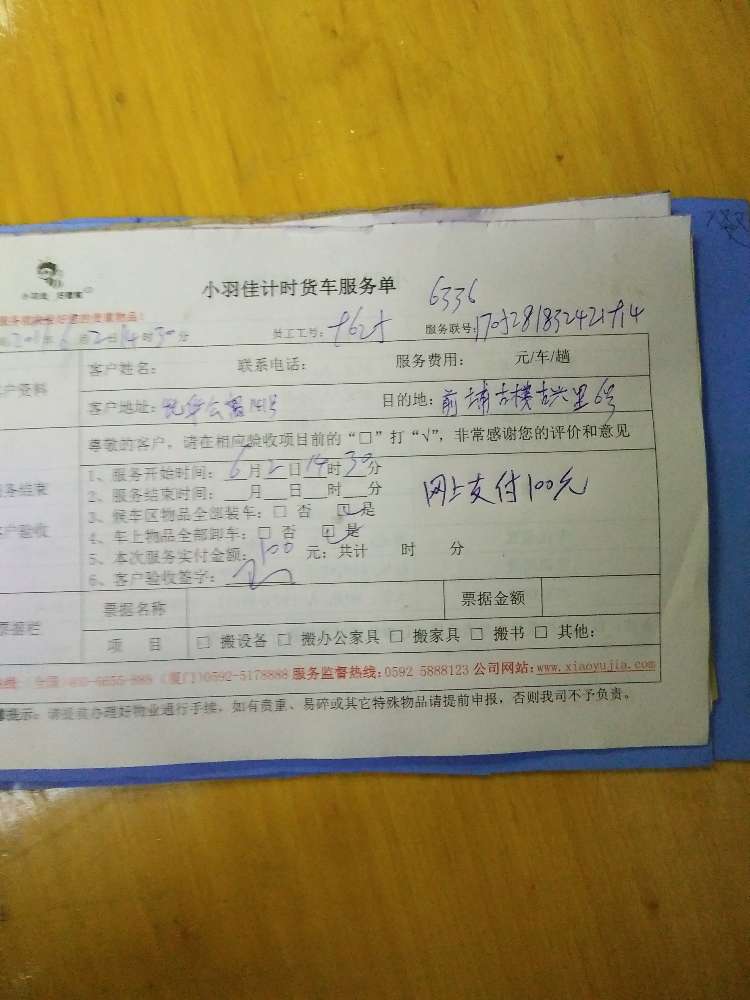 小羽佳 好管家
小羽佳计时货车服务单
6336
员工工号： 服务联号：
客户姓名： 联系电话： 服务费用： 元/车/趟
户资料
客户地址： 目的地：前埔古楼古兴里6号
尊敬的客户，请在相应验收项目前的“□”打“√”，非常感谢您的评价和意见
1、服务开始时间：6月2日14时30分
2、服务结束时间：__月__日__时__分
网上支付100元
务结束
3、候车区物品全部装车：□ 否 □ 是
户验收
4、车上物品全部卸车：□ 否 □ 是
5、本次服务实付金额：100元；共计 时 分
6、客户验收签字：
票据名称 票据金额
票据栏
项 目 □ 搬设备 □ 搬办公家具 □ 搬家具 □ 搬书 □ 其他：
(厦门)0592-5178888 服务监督热线：0592 5888123 公司网站：www.xiaoyujia.com
提示：请提前办理好物业通行手续，如有贵重、易碎或其它特殊物品请提前申报，否则我司不予负责。